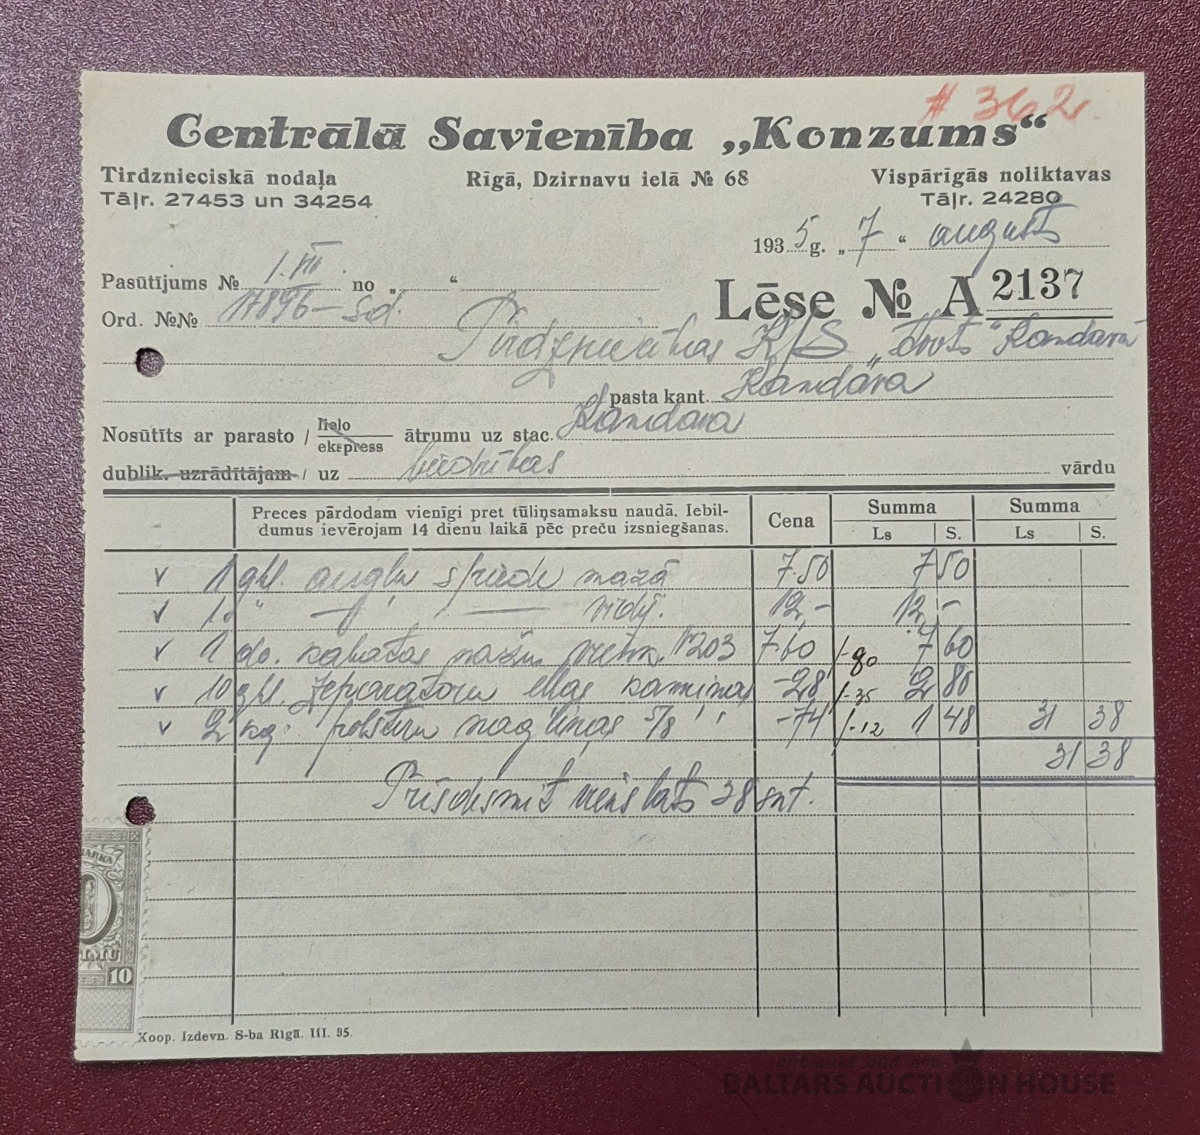 # 362.
Centrālā Savienība „Konzums“
Tirdznieciskā nodaļa
Tāļr. 27453 un 34254
Rīgā, Dzirnavu ielā № 68
Vispārīgās noliktavas
Tāļr. 24280
1935 g. „ 7 “ augusts
Pasūtījums № 1. III no „ “
Ord. №№ 17896-
Lēse № A 2137
Tirdzniecības K/S „ “ Kandavā
pasta kant. Kandava
Nosūtīts ar parasto / lielo ekspress ātrumu uz stac. Kandava
dublik. uzrādītājam / uz biedrības vārdu
Preces pārdodam vienīgi pret tūliņsamaksu naudā. Iebil-
dumus ievērojam 14 dienu laikā pēc preču izsniegšanas.
Cena
Summa
Ls S.
Summa
Ls S.
v 1 gbl. mazā 7.50 7 50
v 1 " — " — 12,- 12 -
v 1 do. 203 7 60 1.90 7 60
v 10 gbl. -28 1.35 2 80
v 2 kg. 5/8" -74 1.12 1 48 31 38
31 38
Trīsdesmit viens lats 38 snt.
MARKA
10
Koop. Izdevn. S-ba Rīgā. III. 35.
antiques and art
BALTARS AUCTION HOUSE